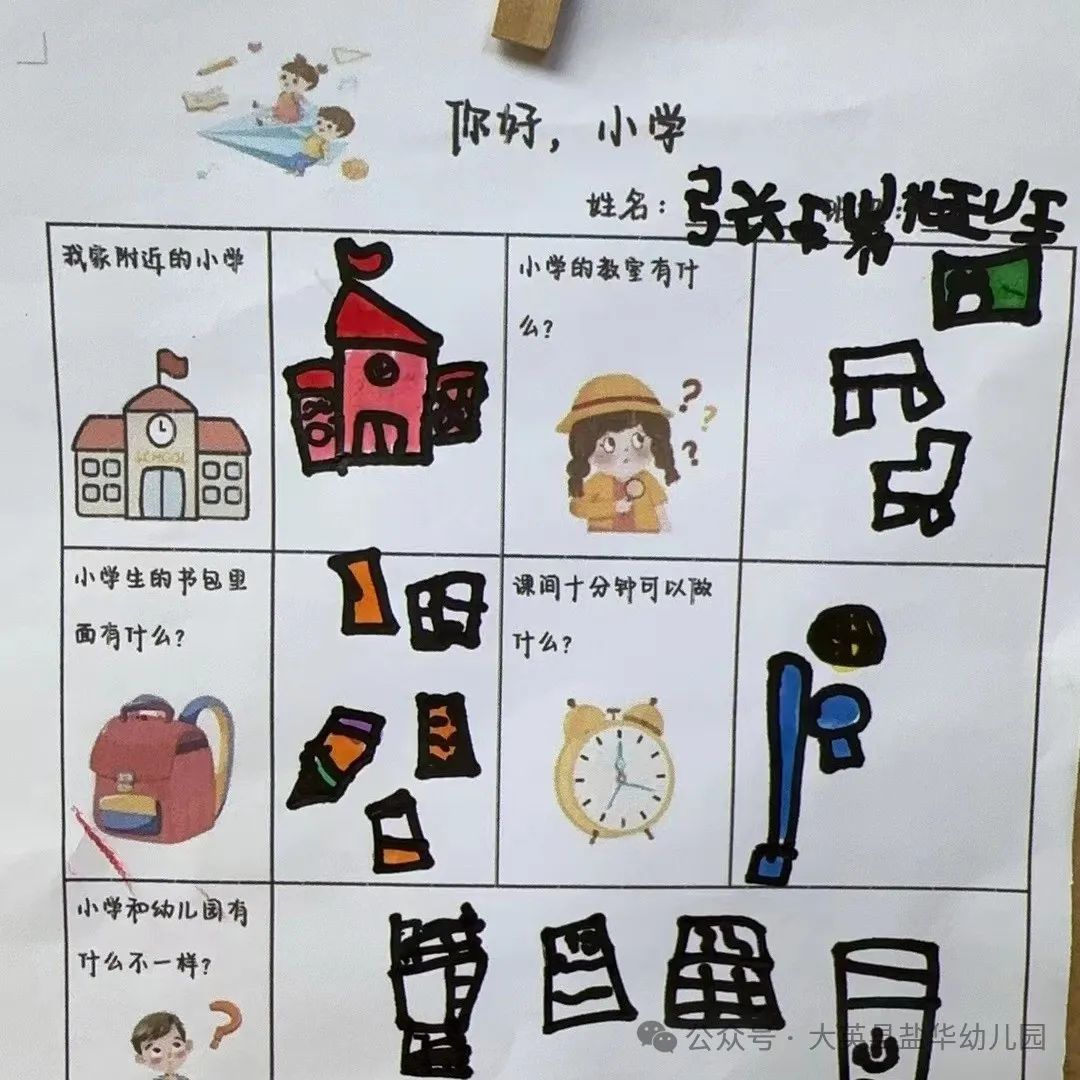 你好，小学
姓名：张
我家附近的小学
SCHOOL
小学的教室有什
么？
小学生的书包里
面有什么？
课间十分钟可以做
什么？
小学和幼儿园有
什么不一样？
公众号·大英县盐华幼儿园